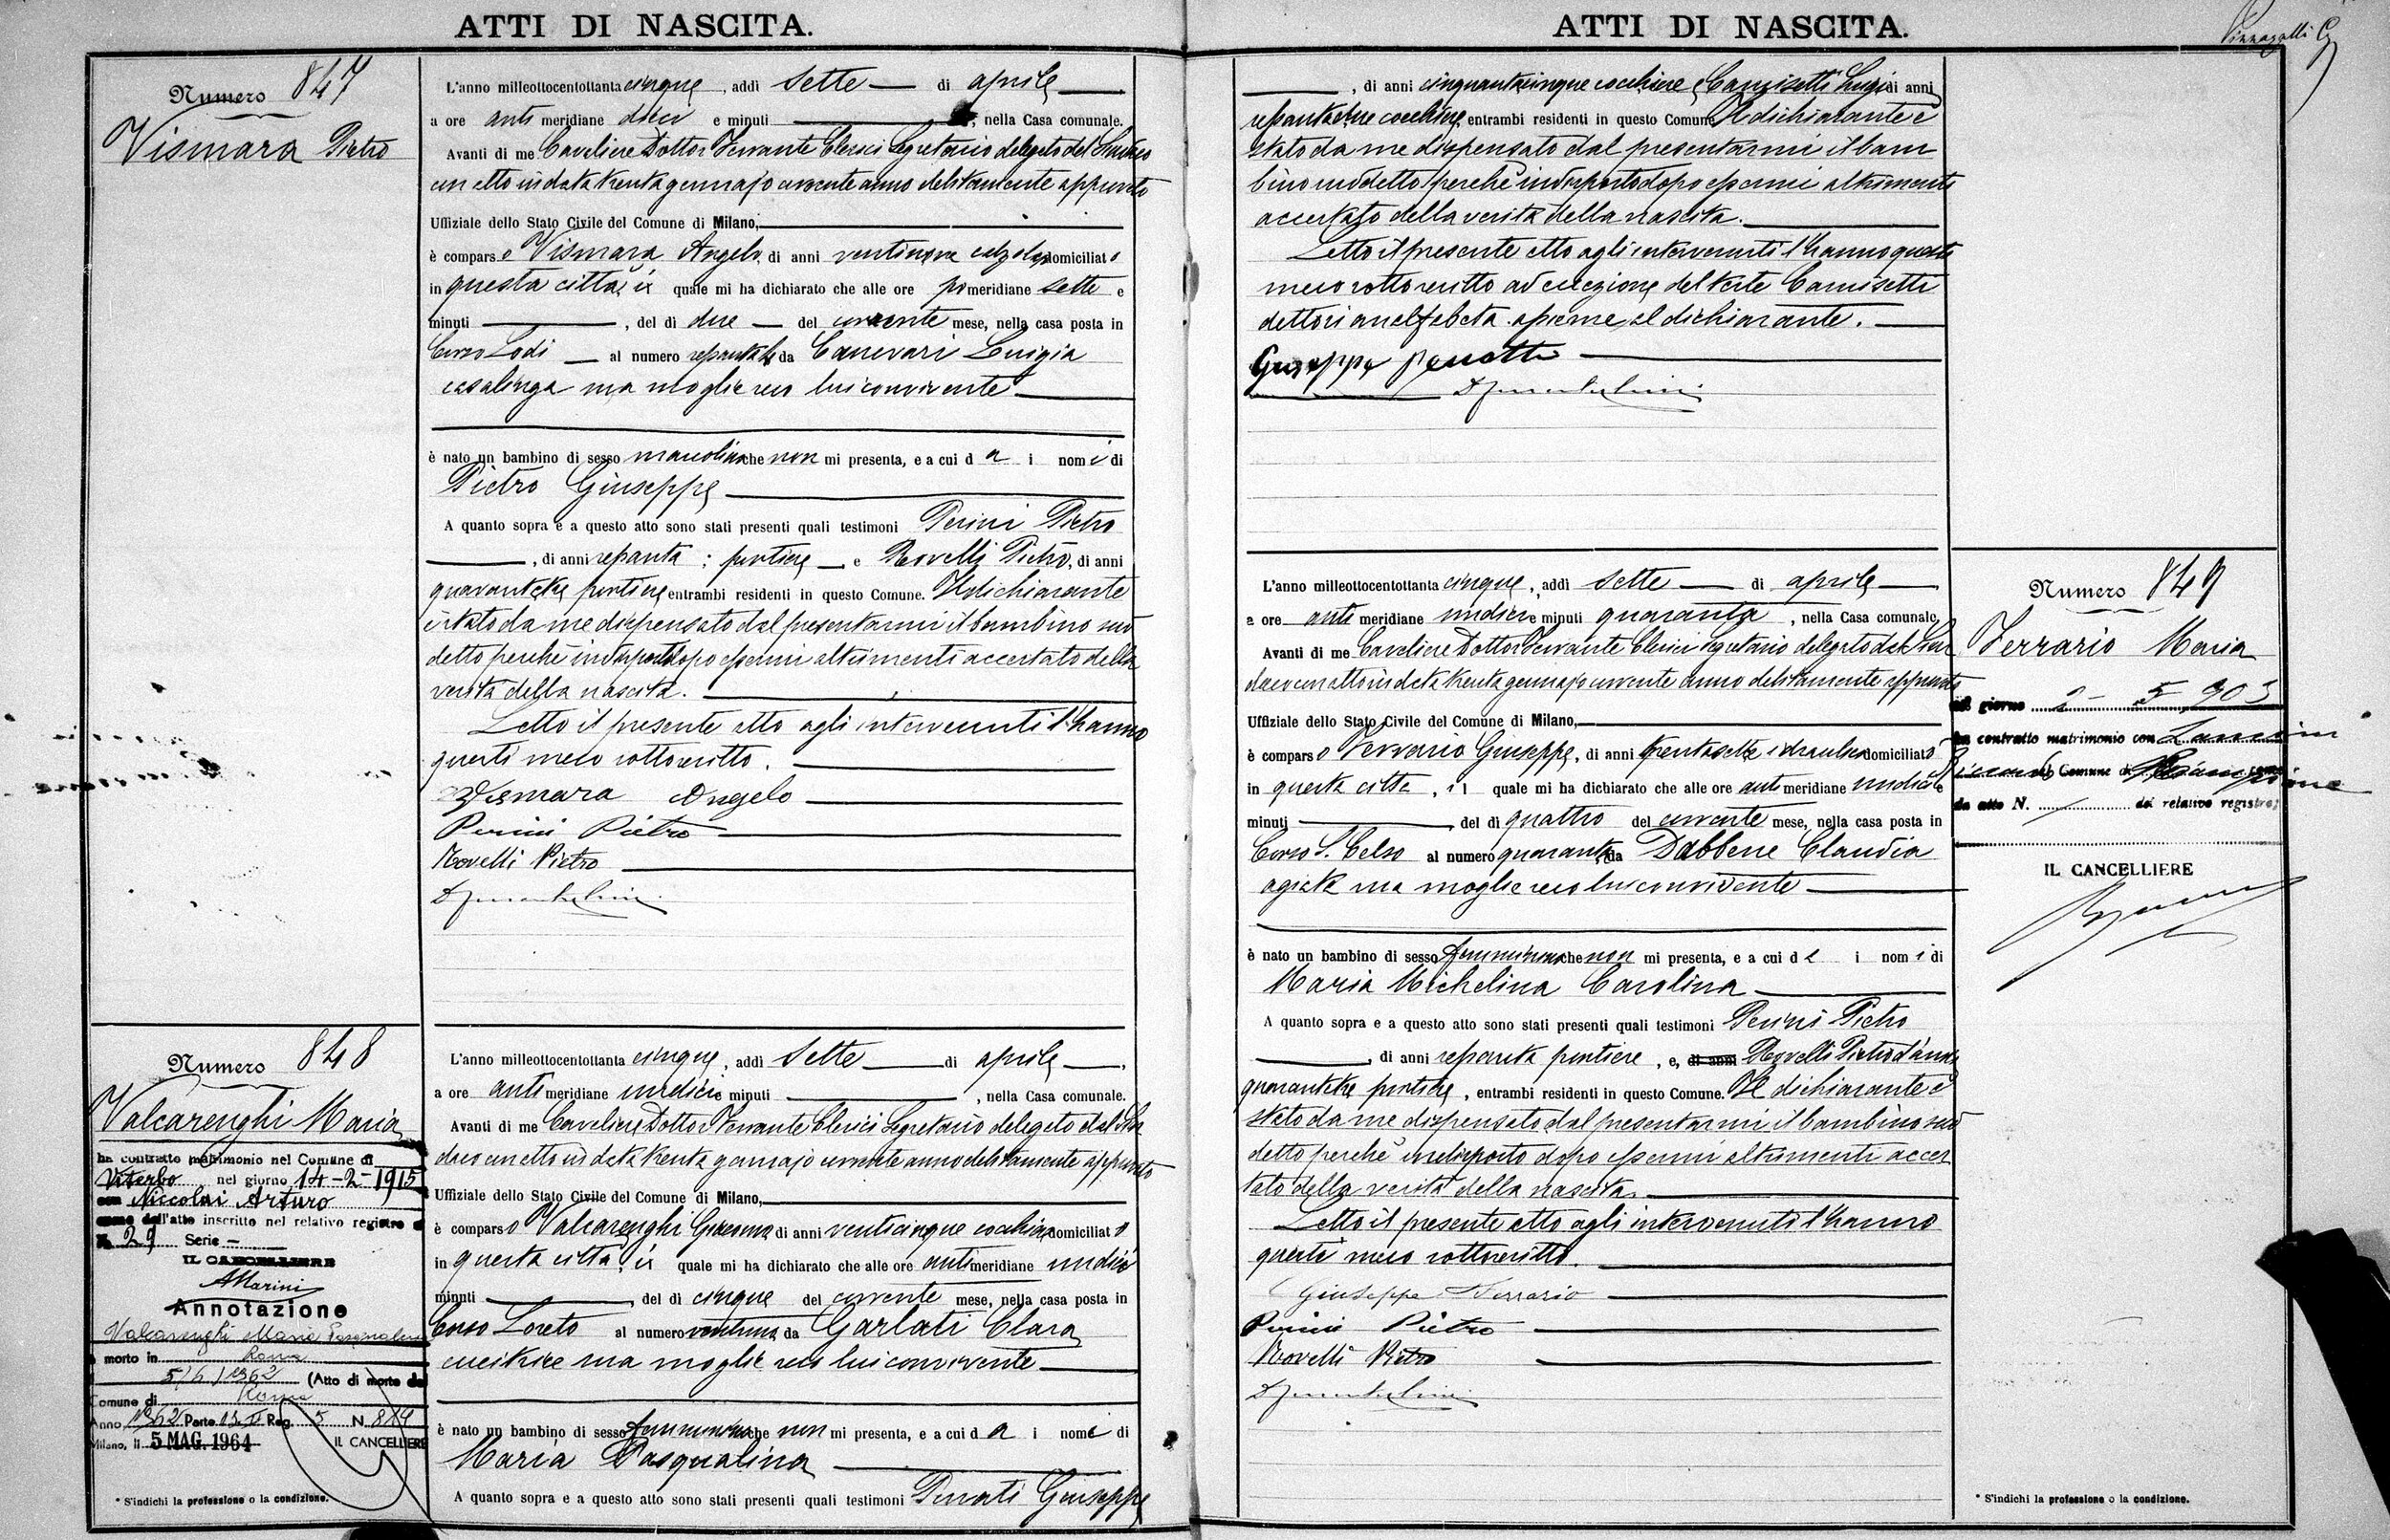 ATTI DI NASCITA.
Numero 847
Vismara Pietro
L'anno milleottocentottanta cinque, addì Sette di aprile
a ore anti meridiane dieci e minuti , nella Casa comunale.
Avanti di me Cavaliere Dottor Ferrante Clerici Segretario delegato dal Sindaco
con atto in data trenta gennajo corrente anno debitamente approvato
Uffiziale dello Stato Civile del Comune di Milano,
è comparso Vismara Angelo, di anni ventinove calzolajo domiciliato
in questa città, il quale mi ha dichiarato che alle ore pomeridiane sette e
minuti , del dì due del corrente mese, nella casa posta in
Corso Lodi al numero da Canevari Luigia
casalinga sua moglie seco lui convivente
è nato un bambino di sesso mascolino che non mi presenta, e a cui dà i nomi di
Pietro Giuseppe
A quanto sopra e a questo atto sono stati presenti quali testimoni Perini Pietro
, di anni sessanta portiere e Rovelli Pietro, di anni
quarantatre portiere entrambi residenti in questo Comune. Il dichiarante
è stato da me dispensato dal presentarmi il bambino sud
detto perchè indisposto dopo essermi altrimenti accertato della
verità della nascita.
Letto il presente atto agli intervenuti l'hanno
questi meco sottoscritto.
Vismara Angelo
Perini Pietro
Rovelli Pietro
Numero 848
Valcarenghi Maria
ha contratto matrimonio nel Comune di
Viterbo nel giorno 14-2-1915
con Niccolai Arturo
come dall'atto inscritto nel relativo registro al
N. 29 Serie -
IL CANCELLIERE
AMarini
Annotazione
Valcarenghi Maria Pasqualina
è morto in Roma
5/6/1962 (Atto di morte del
Comune di Roma
Anno 1962 Parte Reg. 5 N.
Milano, lì 5 MAG. 1964 IL CANCELLIERE
* S'indichi la professione o la condizione.
L'anno milleottocentottanta cinque, addì Sette di aprile,
a ore anti meridiane undici e minuti , nella Casa comunale.
Avanti di me Cavaliere Dottor Ferrante Clerici Segretario delegato dal Sin
daco con atto in data trenta gennajo corrente anno debitamente approvato
Uffiziale dello Stato Civile del Comune di Milano,
è comparso Valcarenghi Giacomo di anni venticinque cocchiere domiciliato
in questa città, il quale mi ha dichiarato che alle ore antimeridiane undici e
minuti , del dì cinque del corrente mese, nella casa posta in
Corso Loreto al numero ventuno da Garlati Clara
cucitrice sua moglie seco lui convivente
è nato un bambino di sesso femminino che non mi presenta, e a cui dà i nomi di
Maria Pasqualina
A quanto sopra e a questo atto sono stati presenti quali testimoni Giuseppe
ATTI DI NASCITA.
, di anni cinquantacinque cocchiere e Camisetti Luigi di anni
cocchiere, entrambi residenti in questo Comune. Il dichiarante è
stato da me dispensato dal presentarmi il bam
bino suddetto perchè indisposto dopo essermi altrimenti
accertato della verità della nascita.
Letto il presente atto agli intervenuti l'hanno questi
meco sottoscritto ad eccezione del teste Camisetti
dettosi analfabeta
Giuseppe
L'anno milleottocentottanta cinque, addì Sette di aprile
a ore anti meridiane undici e minuti quaranta, nella Casa comunale.
Avanti di me Cavaliere Dottor Ferrante Clerici Segretario delegato dal Sin
daco con atto in data trenta gennajo corrente anno debitamente approvato
Uffiziale dello Stato Civile del Comune di Milano,
è comparso Ferrario Giuseppe, di anni trentasette idraulico domiciliato
in questa città, il quale mi ha dichiarato che alle ore anti meridiane undici e
minuti , del dì quattro del corrente mese, nella casa posta in
Corso S. Celso al numero quaranta da Dabbene Claudia
agiata sua moglie seco lui convivente
è nato un bambino di sesso femminino che non mi presenta, e a cui dà i nomi di
Maria Michelina Carolina
A quanto sopra e a questo atto sono stati presenti quali testimoni Perini Pietro
, di anni sessanta portiere, e, di anni Rovelli Pietro d'anni
quarantatre portiere, entrambi residenti in questo Comune. Il dichiarante è
stato da me dispensato dal presentarmi il bambino sud
detto perchè indisposto dopo essermi altrimenti accer
tato della verità della nascita.
Letto il presente atto agli intervenuti l'hanno
questi meco sottoscritto.
Giuseppe Ferrario
Perini Pietro
Rovelli Pietro
Numero 849
Ferrario Maria
il giorno 2 - 5 903
ha contratto matrimonio con
nel Comune di
da atto N. del relativo registro;
IL CANCELLIERE
* S'indichi la professione o la condizione.